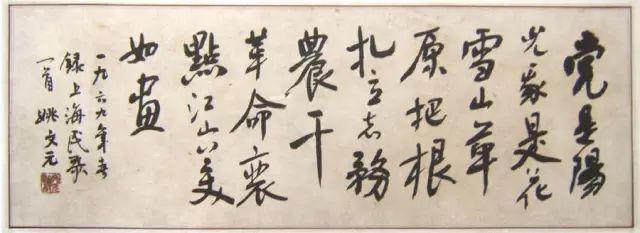 党是陽
光我是花
雪山草
原把根
扎立志務
農干
革命裝
點江山美
如畫
一九六九年春
録上海民歌
一首 姚文元